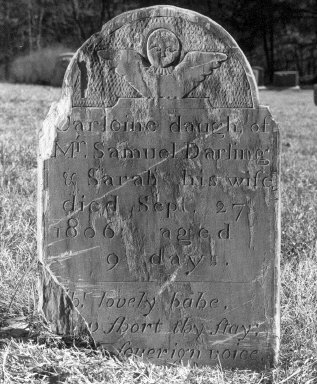 daugh. of
Mr. Samuel Darling
& Sarah his wife
died Sept. 27
1806 aged
9 days.
lovely babe,
short thy stay,
soverign voice